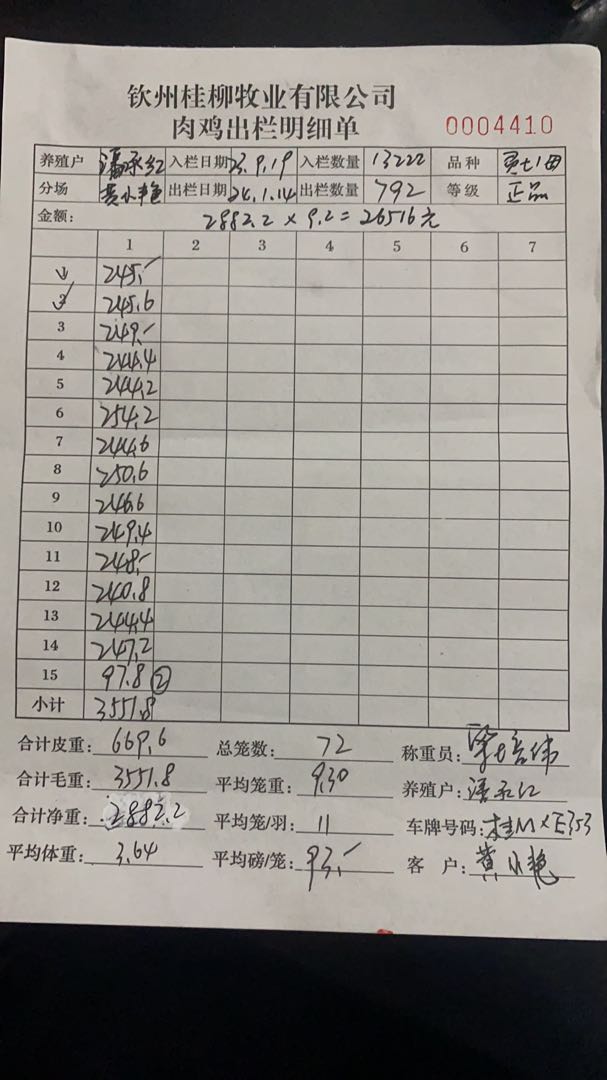 钦州桂柳牧业有限公司
肉鸡出栏明细单 0004410
养殖户 潘承红 入栏日期 23.9.19 入栏数量 13222 品种
分场 黄水艳 出栏日期 24.1.14 出栏数量 792 等级 正品
金额: 2882.2 × 9.2 = 26516元
1 2 3 4 5 6 7
1 245.-
2 245.6
3 249.-
4 244.4
5 244.2
6 254.2
7 244.6
8 250.6
9 246.6
10 249.4
11 248.-
12 240.8
13 244.4
14 247.2
15 97.8 ②
小计 3551.8
合计皮重: 669.6 总笼数: 72 称重员:
合计毛重: 3551.8 平均笼重: 9.30 养殖户: 潘承红
合计净重: 2882.2 平均笼/羽: 11 车牌号码: 桂MXE353
平均体重: 3.64 平均磅/笼: 93.- 客户: 黄水艳